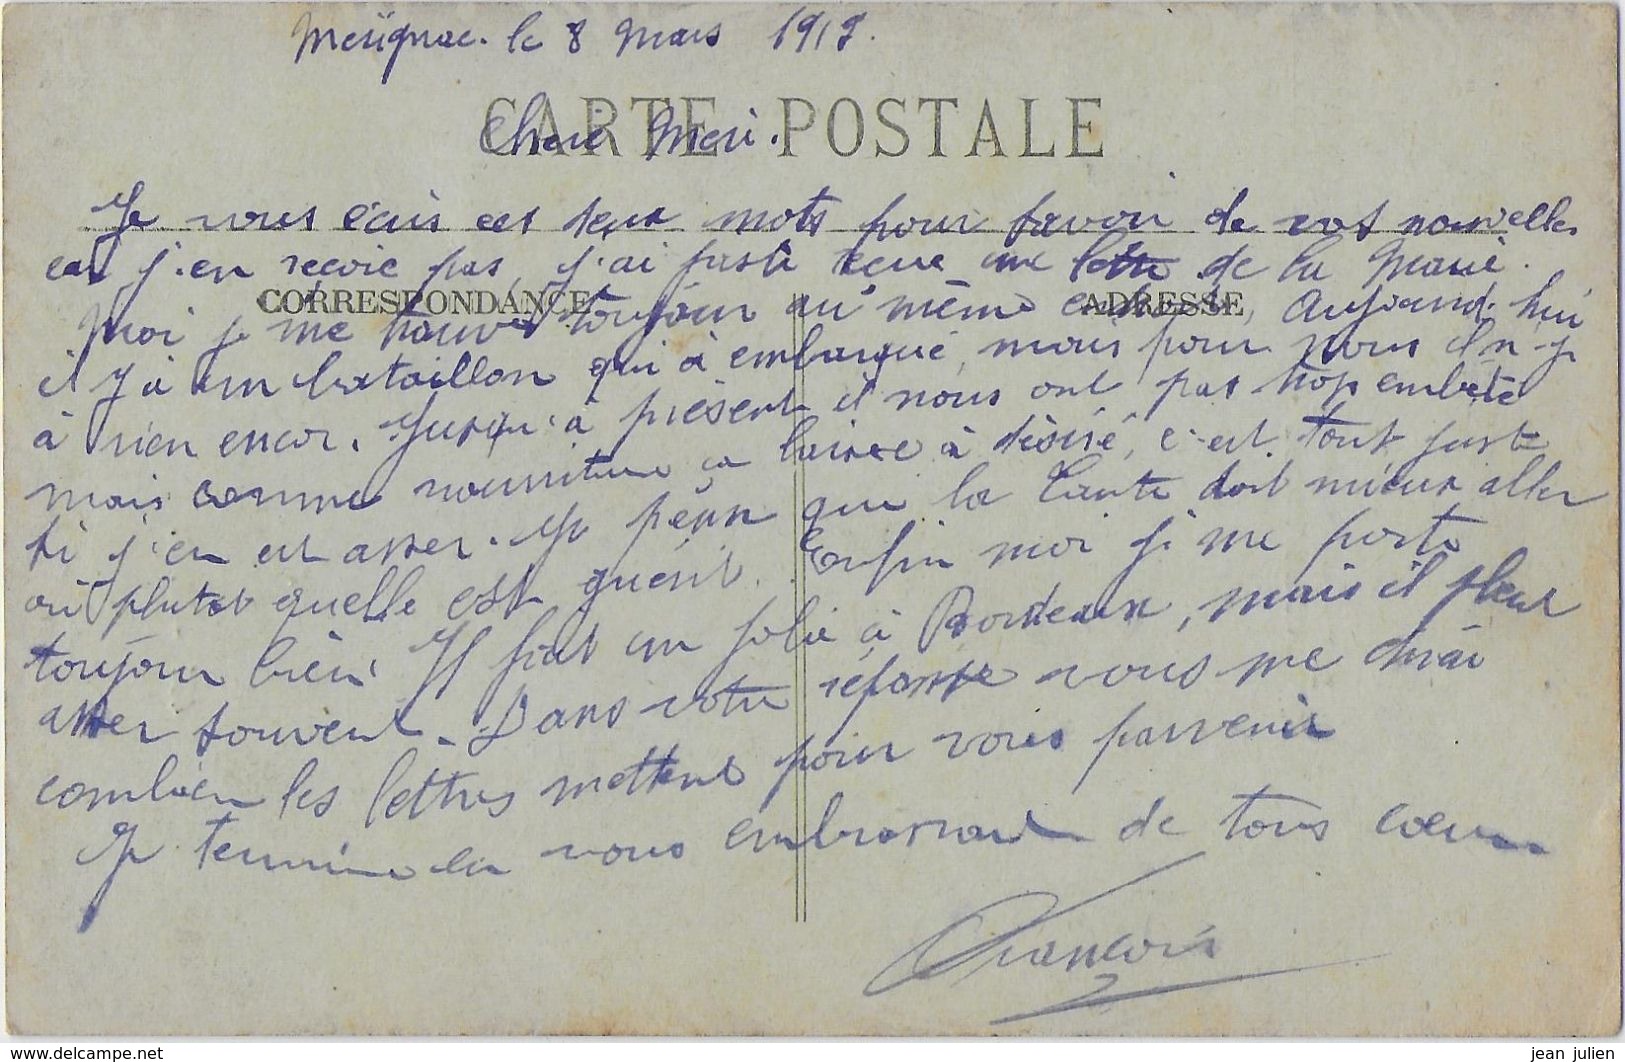 Merignac. le 8 Mars 1919.
CARTE POSTALE
Chere Meri.
Je vous écris ces deux mots pour savoir de vos nouvelles
car j'en recoie pas, j'ai juste recue une lettre de la Marie.
CORRESPONDANCE
ADRESSE
Moi je me trouve toujour au même Aujourd'hui
il y à un bataillon qui à embarqué, mais pour nous il n-y
à rien encor. Jusqu'à présent il nous ont pas trop embété
mais comme nourriture ça laisse à désiré, c'est tout juste
si j'en est asser. Je pense que la Tante doit mieux aller
ou plutot quelle est guérit. Enfin moi je me porte
toujour bien. Il fait un jolie à Bordeaux, mais il pleut
asser souvent. Dans votre réponse vous me dirai
combien les lettres mettent pour vous parvenir
Je termine en vous embrassant de tous coeur
François
www.delcampe.net
jean julien